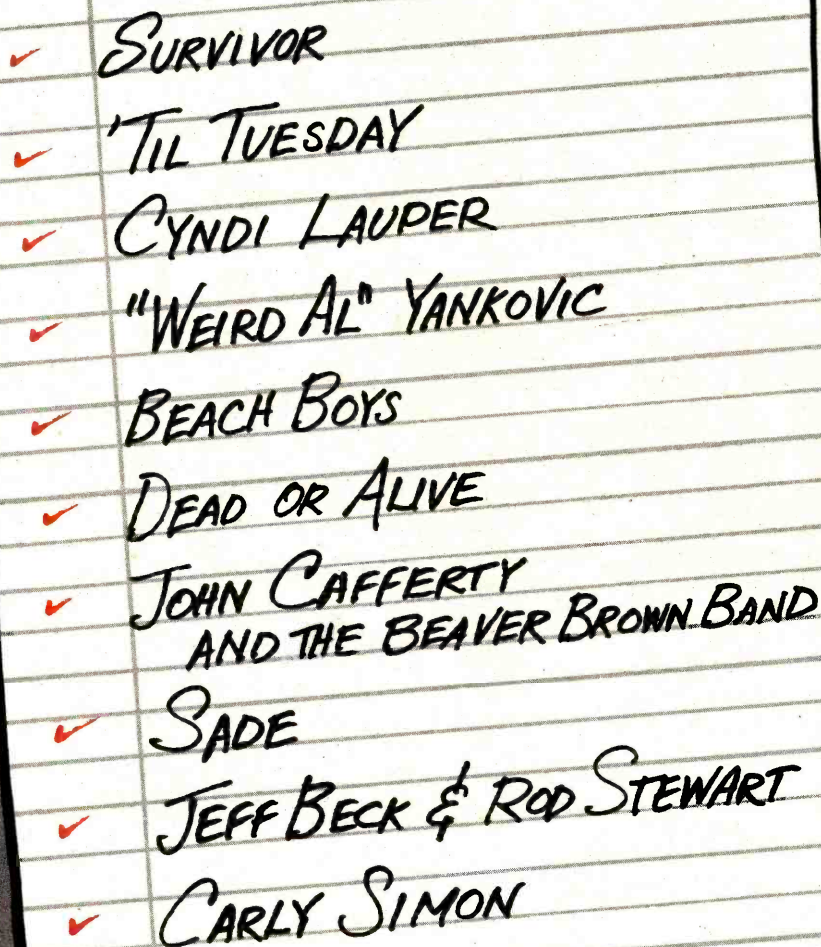 SURVIVOR
'TIL TUESDAY
CYNDI LAUPER
"WEIRD AL" YANKOVIC
BEACH BOYS
DEAD OR ALIVE
JOHN CAFFERTY
AND THE BEAVER BROWN BAND
SADE
JEFF BECK & ROD STEWART
CARLY SIMON